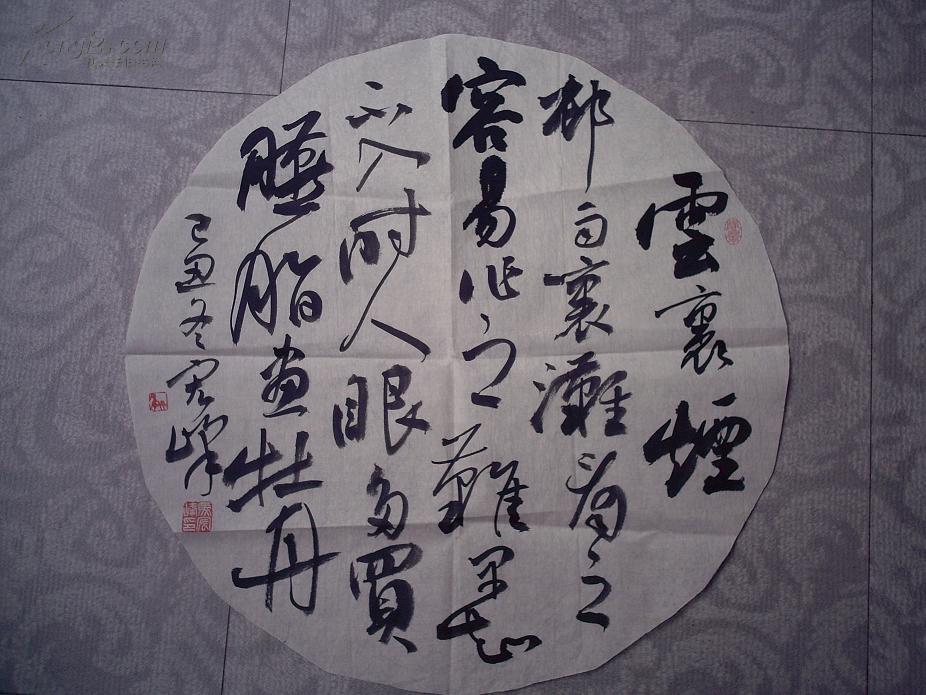 雲裏煙
邨雨裏灘為之
容易作之難早知
不入時人眼多買
臙脂畫牡丹
己丑冬宏峰